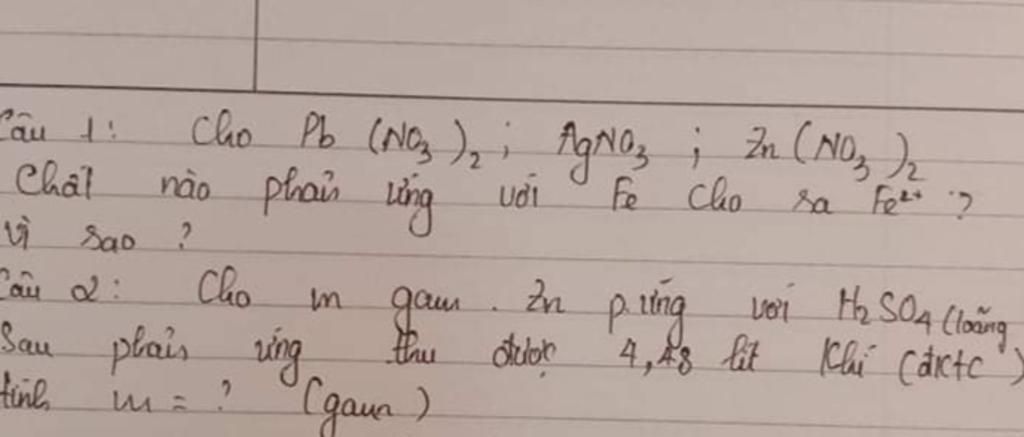 Câu 1: Cho Pb(NO₃)₂; AgNO₃; Zn(NO₃)₂
Chất nào phản ứng với Fe cho ra Fe²⁺?
Vì sao?
Câu 2: Cho m gam Zn p.ứng với H₂SO₄ (loãng
Sau phản ứng thu được 4,48 lít khí (đktc)
tính m = ? (gam)